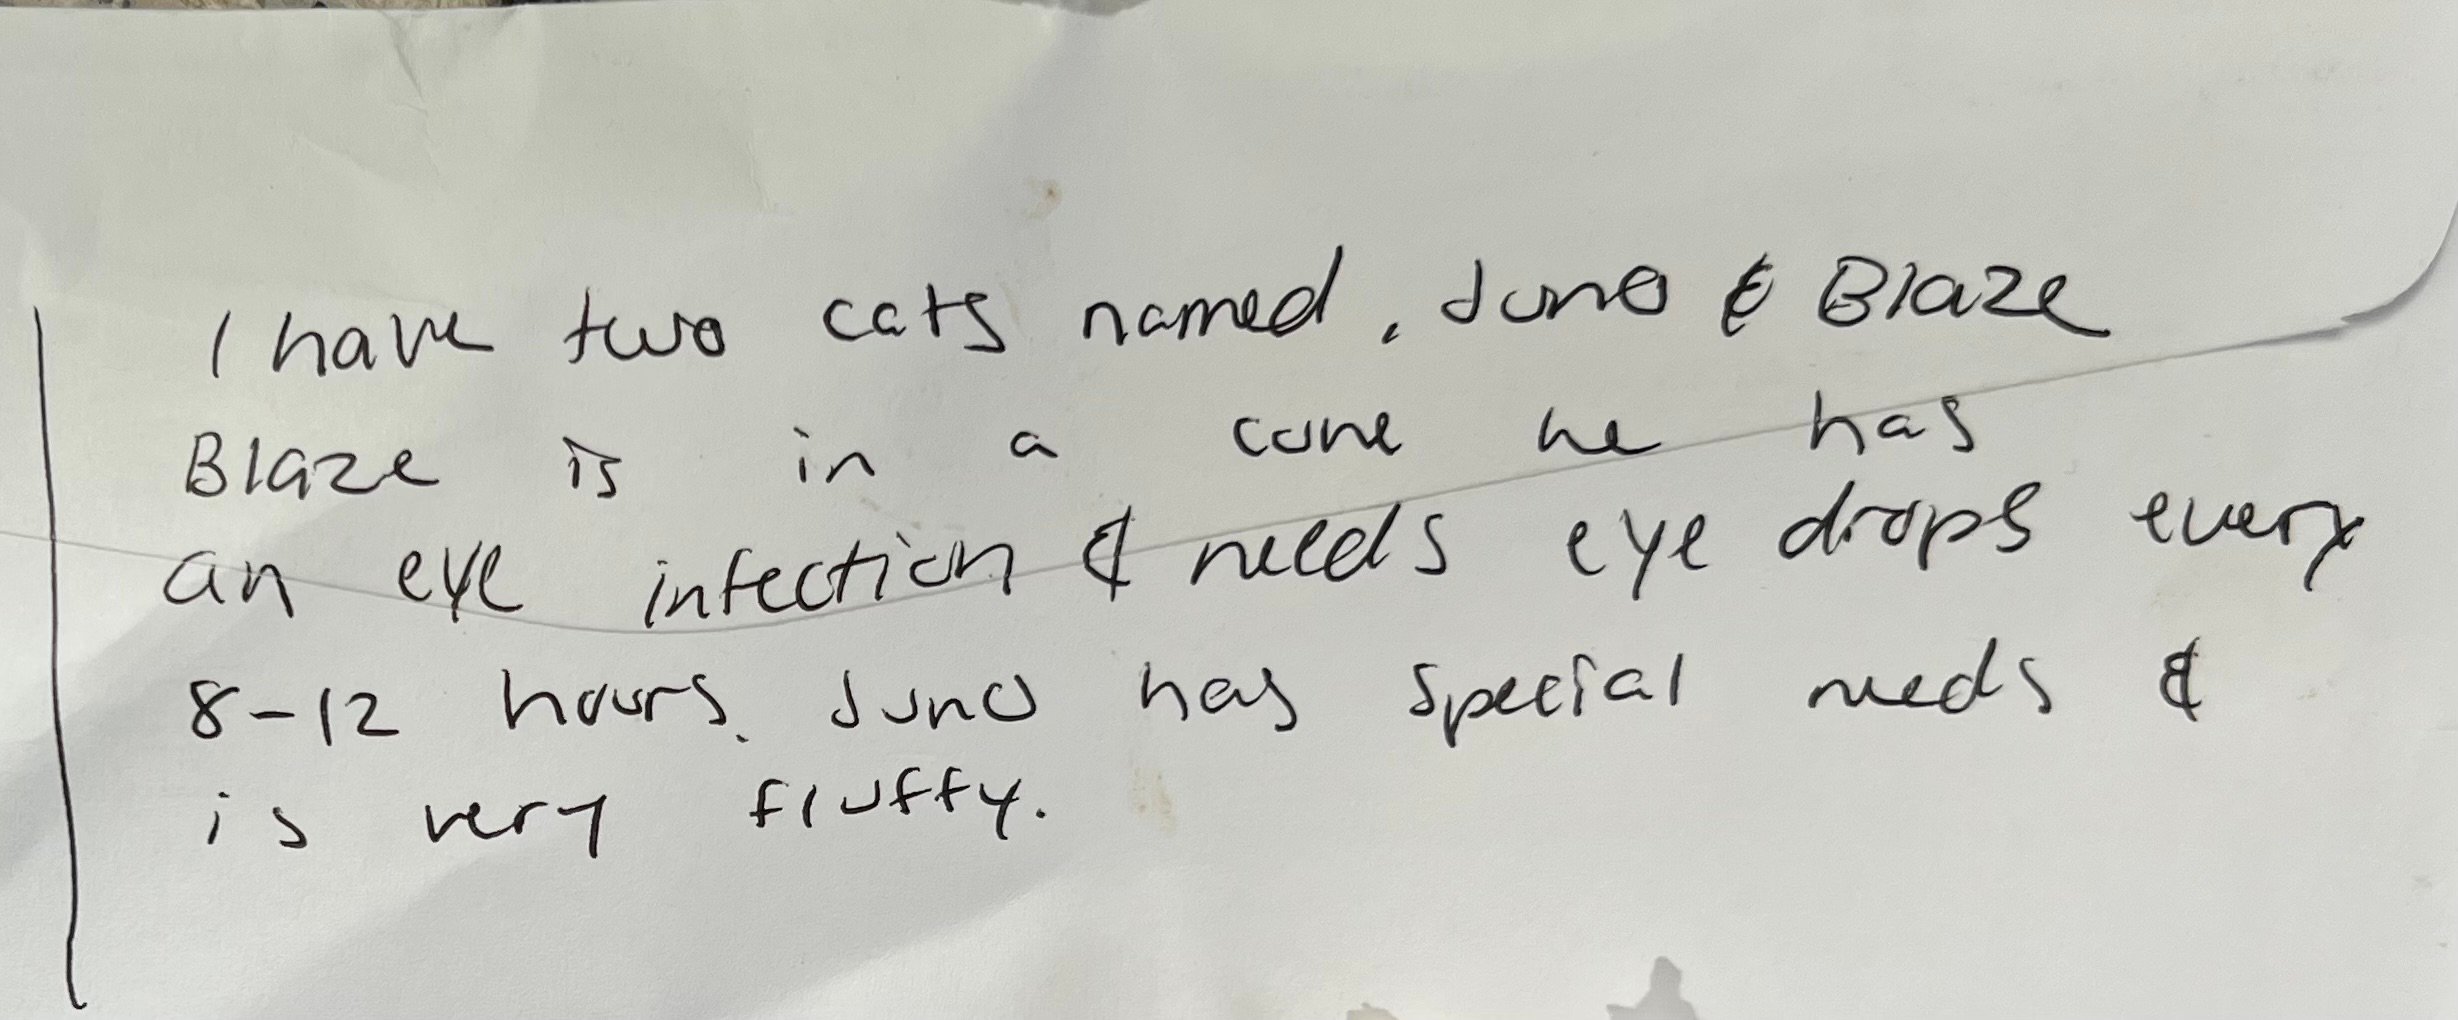 I have two cats named, Juno & Blaze
Blaze is in a cone he has
an eye infection & needs eye drops every
8-12 hours. Juno has special needs &
is very fluffy.